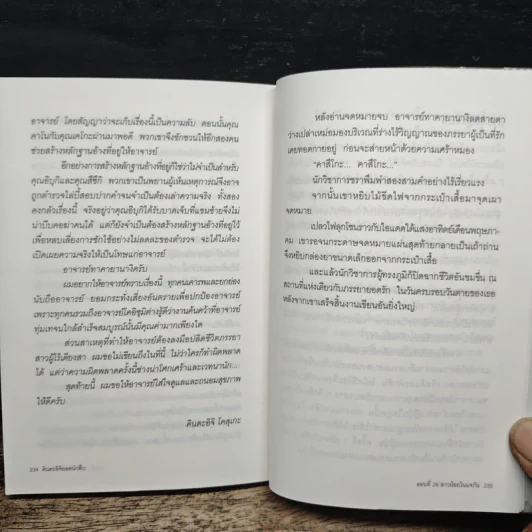 อาจารย์ โดยสัญญาว่าจะเก็บเรื่องนี้เป็นความลับ ตอนนั้นคุณ
คาโนกับคุณเคโกะผ่านมาพอดี พวกเขาจึงชักชวนให้อีกสองคน
ช่วยสร้างหลักฐานอ้างที่อยู่ให้อาจารย์
อีกอย่างการสร้างหลักฐานอ้างที่อยู่ก็ใช่ว่าไม่จำเป็นสำหรับ
คุณอิบุกิและคุณสึซึกิ พวกเขาเป็นพยานผู้เห็นเหตุการณ์จึงอาจ
ถูกตำรวจไล่บี้สอบปากคำจนจำเป็นต้องเล่าความจริง ทั้งสอง
คงกลัวเรื่องนี้ จริงอยู่ว่าคุณอิบุกิได้รับบาดเจ็บที่แขนซ้ายจึงไม่
น่าบีบคอฆ่าคนได้ แต่ก็ยังจำเป็นต้องสร้างหลักฐานอ้างที่อยู่ไว้
เพื่อหลบเลี่ยงการซักไซ้อย่างไม่ลดละของตำรวจ จะได้ไม่ต้อง
เปิดเผยความจริงให้เป็นโทษแก่อาจารย์
อาจารย์ทาคายานางิครับ
ผมอยากให้อาจารย์ทราบเรื่องนี้ ทุกคนเคารพและยกย่อง
นับถืออาจารย์ ยอมกระทั่งเสี่ยงอันตรายเพื่อปกป้องอาจารย์
เพราะทุกคนรวมถึงอาจารย์โคอิซุมิต่างรู้ดีว่างานค้นคว้าที่อาจารย์
ทุ่มเทจนใกล้สำเร็จสมบูรณ์นั้นมีคุณค่ามากเพียงใด
ส่วนสาเหตุที่ทำให้อาจารย์ต้องลงมือปลิดชีวิตภรรยา
สาวผู้ไร้เดียงสา ผมขอไม่เขียนถึงในที่นี้ ไม่ว่าใครก็ทำผิดพลาด
ได้ แต่ว่าความผิดพลาดครั้งนี้ช่างน่าโศกเศร้าและเวทนานัก...
สุดท้ายนี้ ผมขอให้อาจารย์ใส่ใจดูแลและถนอมสุขภาพ
ให้ดีครับ
คินดะอิจิ โคสุเกะ
234 คินดะอิจิยอดนักสืบ
หลังอ่านจดหมายจบ อาจารย์ทาคายานางิลดสายตา
ว่างเปล่าเหม่อมองบริเวณที่ร่างไร้วิญญาณของภรรยาผู้เป็นที่รัก
เคยทอดกายอยู่ ก่อนจะส่ายหน้าด้วยความเศร้าหมอง
"คาสึโกะ... คาสึโกะ..."
นักวิชาการชราพึมพำสองสามคำอย่างไร้เรี่ยวแรง
จากนั้นเขาหยิบไม้ขีดไฟจากกระเป๋าเสื้อมาจุดเผา
จดหมาย
เปลวไฟลุกโชนราวกับไอแดดใต้แสงอาทิตย์เดือนพฤษภา-
คม เขารอจนกระดาษจดหมายแผ่นสุดท้ายกลายเป็นเถ้าถ่าน
จึงหยิบกล่องยาขนาดเล็กออกจากกระเป๋าเสื้อ
และแล้วนักวิชาการผู้ทรงภูมิก็ปิดฉากชีวิตอันขมขื่น ณ
สถานที่แห่งเดียวกับภรรยายอดรัก ในวันครบรอบวันตายของเธอ
หลังจากเขาเสร็จสิ้นงานเขียนอันยิ่งใหญ่
ตอนที่ 26 สาวน้อยในแจกัน 235